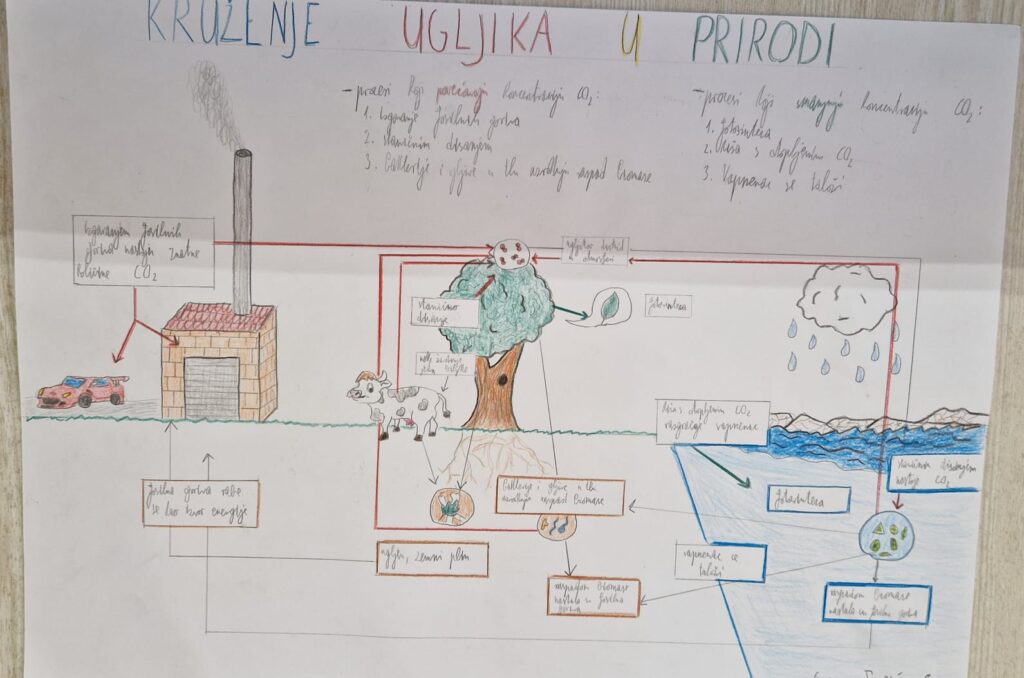 KRUŽENJE UGLJIKA U PRIRODI
- procesi koji povećavaju koncentraciju CO₂:
1. Izgaranje fosilnih goriva
2. staničnim disanjem
3. Bakterije i gljive u tlu uzrokuju raspad biomase
- procesi koji smanjuju koncentraciju CO₂:
1. fotosinteza
2. Kiša s otopljenim CO₂
3. Vapnenac se taloži
Izgaranjem fosilnih
goriva nastaju znatne
količine CO₂
ugljikov dioksid
u atmosferi
stanično
disanje
fotosinteza
Kiša s otopljenim CO₂
razgrađuje vapnenac
staničnim disanjem
nastaje CO₂
fosilna goriva rabe
se kao izvor energije
Bakterije i gljive u tlu
uzrokuju raspad biomase
fotosinteza
ugljen, zemni plin
vapnenac se
taloži
raspadom biomase
nastala su fosilna
goriva
raspadom biomase
nastala su fosilna goriva